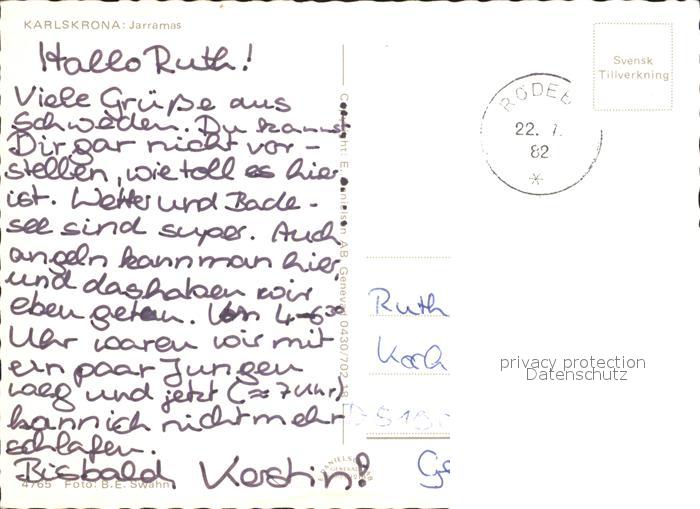 KARLSKRONA: Jarramas
Hallo Ruth!
Viele Grüße aus
Schweden. Du kannst
Dir gar nicht vor-
stellen, wie toll es hier
ist. Wetter und Bade-
see sind super. Auch
angeln kann man hier
und das haben wir
eben getan. Von 4-6³⁰
Uhr waren wir mit
ein paar Jungen
weg und jetzt (≈ 7 Uhr)
kann ich nicht mehr
schlafen.
Bisbald Kerstin!
4765 Foto: B.E. Swahn
Copyright: E. Danielson AB, Genevad 0430/702 18
Svensk
Tillverkning
RÖDEB
22. 7.
82
Ruth
Koch
privacy protection
Datenschutz